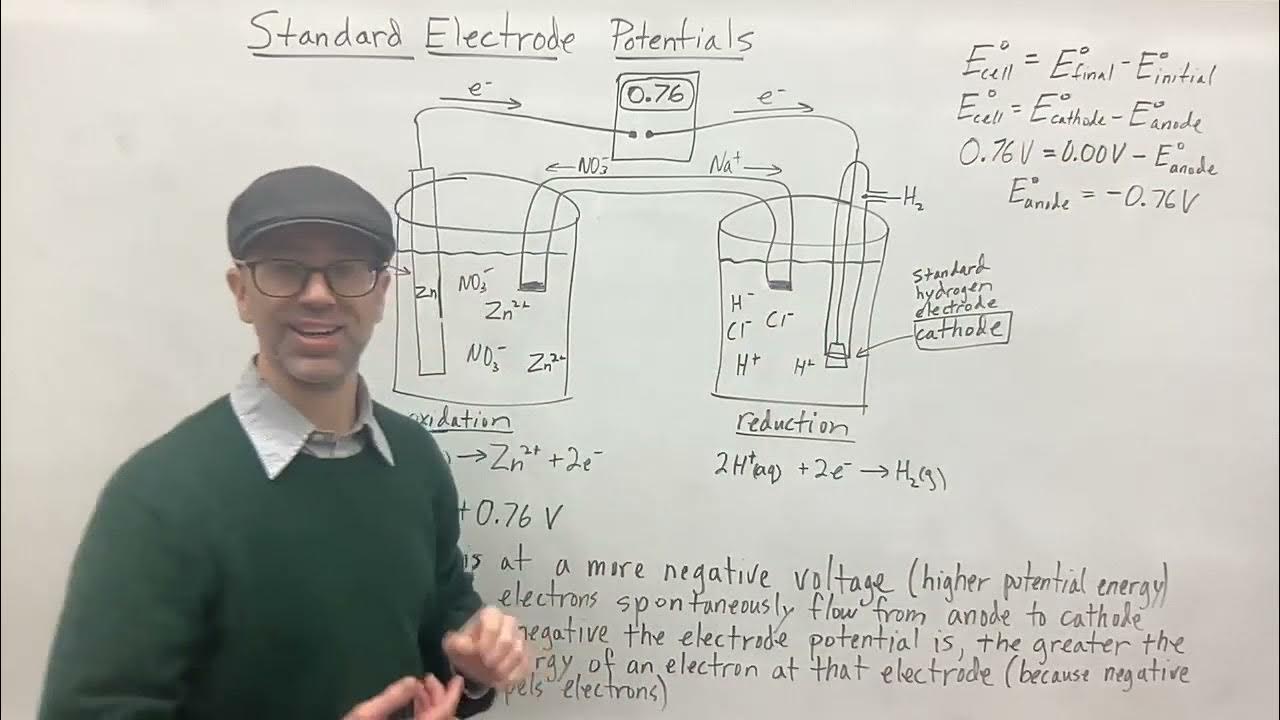 Standard Electrode Potentials
E°cell = E°final - E°initial
E°cell = E°cathode - E°anode
0.76V = 0.00V - E°anode
E°anode = -0.76V
e⁻
0.76
e⁻
NO₃⁻
Na⁺
H₂
Zn
NO₃⁻
Zn²⁺
NO₃⁻
Zn²⁺
H⁻
Cl⁻
Cl⁻
H⁺
H⁺
standard
hydrogen
electrode
cathode
oxidation
→ Zn²⁺ + 2e⁻
reduction
2H⁺(aq) + 2e⁻ → H₂(g)
+0.76 V
is at a more negative voltage (higher potential energy)
electrons spontaneously flow from anode to cathode
negative the electrode potential is, the greater the
of an electron at that electrode (because negative
electrons)